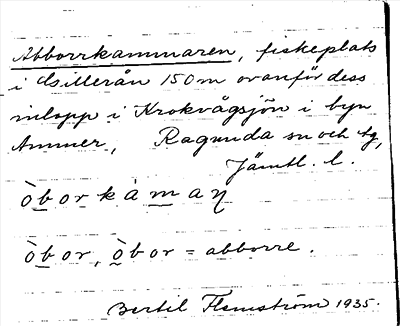 Abborrkammaren, fiskeplats
i Gsillerån 150 m ovanför dess
inlopp i Krokvågsjön i byn
Ammer, Ragunda sn och tg,
Jämtl. l.
òborkàmaη
òbor, òbor = abborre.
Bertil Flemström 1935.